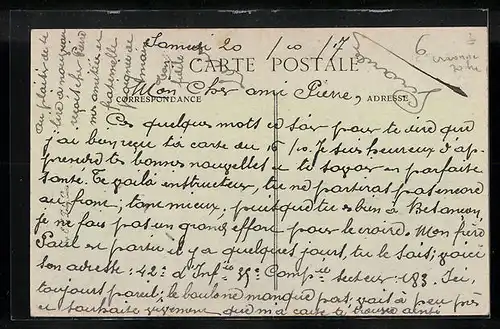 Samedi 20 / 10 / 17
6
CARTE POSTALE
CORRESPONDANCE
ADRESSE
Mon Cher ami Pierre,
Ces quelques mots ce soir pour te dire que
j'ai bien reçu ta carte du 16/10. Je suis heureux d'ap-
prendre tes bonnes nouvelles et te savoir en parfaite
santé. Te voilà instructeur, tu ne partiras pas encore
au front; tant mieux, puisque tu es bien à Besançon,
je ne fais pas un grand effort pour le croire. Mon frère
Paul est parti il y a quelques jours, tu le sais; voici
son adresse: 42e d'Infie 35e Compie secteur 183. Ici,
toujours pareil; le boulot ne manque pas, voit à peu près
et souhaite vivement que ma carte te trouve ainsi
au plaisir de te
lire à nouveau
reçois cher Pierre
mes amitiés et
fraternelle
poignée de
mains
ton